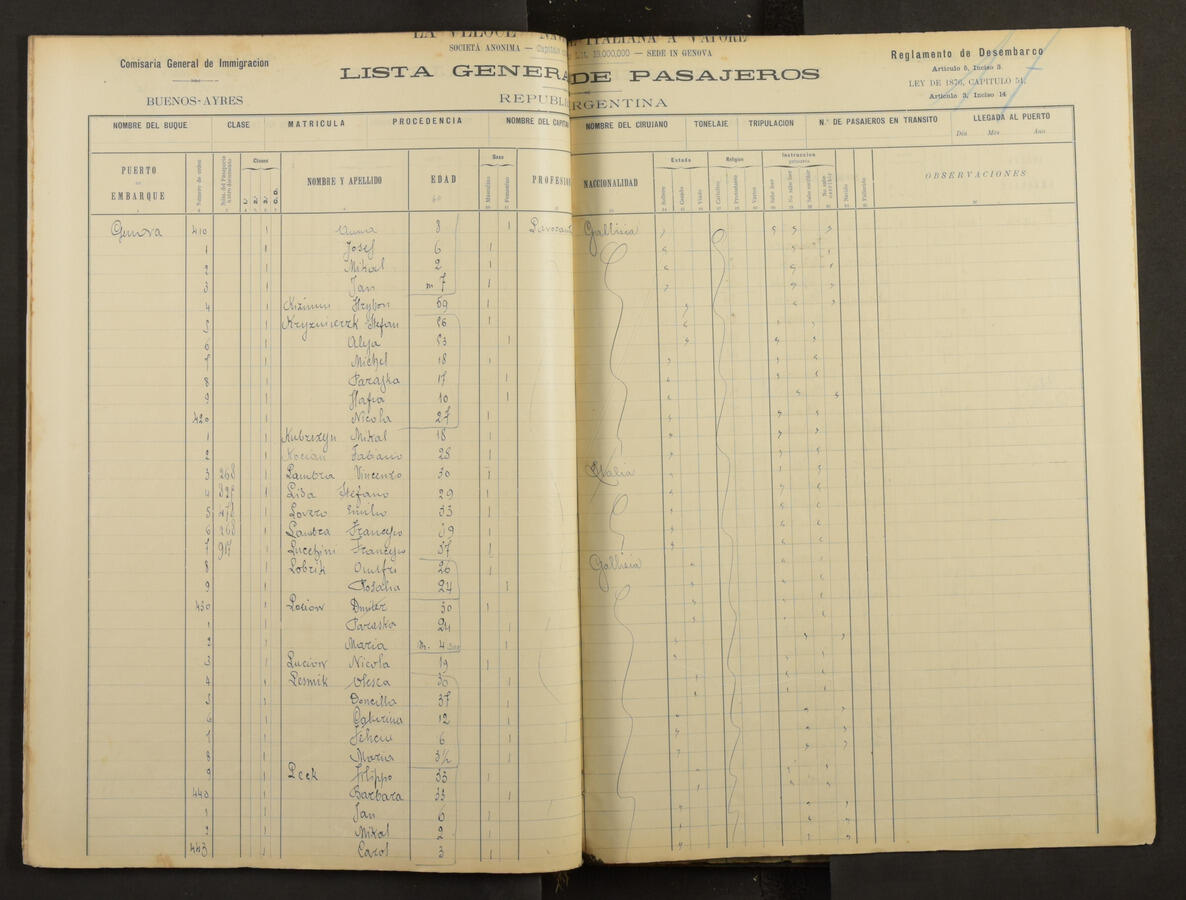 LA VELOCE NAV E ITALIANA A VAPORE
SOCIETÀ ANONIMA — Capitale Lit. 13.000,000 — SEDE IN GENOVA
Comisaria General de Immigracion
BUENOS-AYRES
LISTA GENERA DE PASAJEROS
REPUBLI ARGENTINA
Reglamento de Desembarco
Artículo 5, Inciso 3
LEY DE 1876, CAPITULO 51.
Artículo 3, Inciso 14
NOMBRE DEL BUQUE CLASE MATRICULA PROCEDENCIA NOMBRE DEL CAPITA NOMBRE DEL CIRUJANO TONELAJE TRIPULACION N.° DE PASAJEROS EN TRANSITO LLEGADA AL PUERTO
Dia Mes Año
PUERTO DE EMBARQUE Número de orden Clases 1.ª 2.ª 3.ª NOMBRE Y APELLIDO EDAD Sexo Masculino Femenino PROFESION NACCIONALIDAD Estado Soltero Casado Viudo Religion Católico Protestante Varios Instruccion primaria Sabe leer No sabe leer Sabe escribir No sabe escribir Nacido Fallecido OBSERVACIONES
Genova 410 1 Anna 8 1 Gallisia
1 1 Josef 6 1
2 1 Mikal 2 1
3 1 Jan m 7 1
4 1 Hrybon 59 1
5 1 Stefan 56 1
6 1 53 1
7 1 Michel 18 1
8 1 Paraska 17 1
9 1 10 1
420 1 Nicola 27 1
1 1 Mikal 18 1
2 1 Fabiano 28 1
3 268 1 Lambra Vincenzo 30 1 Italia
4 327 1 Lisa Stefano 29 1
5 1 Lovero Emilio 33 1
6 268 1 Lambra Francesco 39 1
7 917 1 Lucchini Francesco 37 1
8 1 Lobrik Onufri 26 1 Gallisia
9 1 Rosalia 24 1
430 1 Dmiter 30 1
1 1 Paraska 24 1
2 1 Maria m. 4 1
3 1 Lucion Nicola 19 1
4 1 Lesmik Olesca 1
5 1 37 1
6 1 Caterina 12 1
7 1 6 1
8 1 Maria 3½ 1
9 1 Leck Filippo 33 1
440 1 Barbara 33 1
1 1 Jan 6 1
2 1 Mikal 2 1
443 1 Carol 3 1